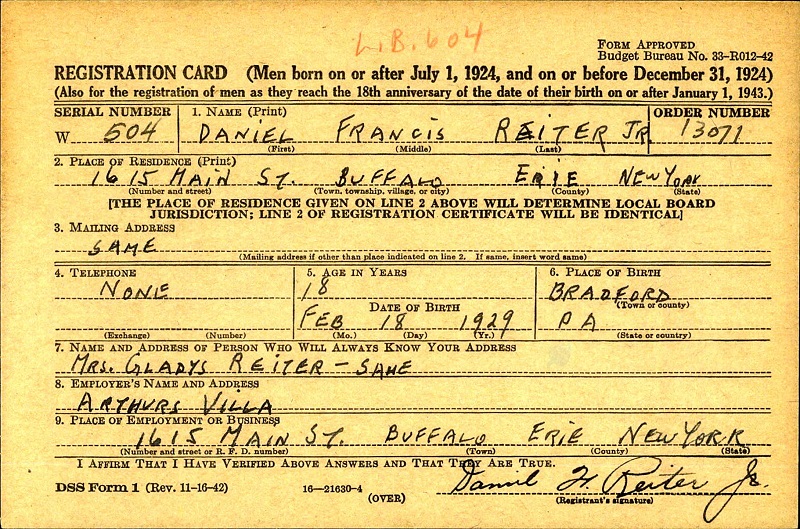 L.B. 604
FORM APPROVED
Budget Bureau No. 33-R012-42
REGISTRATION CARD (Men born on or after July 1, 1924, and on or before December 31, 1924)
(Also for the registration of men as they reach the 18th anniversary of the date of their birth on or after January 1, 1943.)
SERIAL NUMBER 1. NAME (Print) ORDER NUMBER
W 504 DANIEL FRANCIS REITER JR. 13071
(First) (Middle) (Last)
2. PLACE OF RESIDENCE (Print)
1615 MAIN ST. BUFFALO ERIE NEW YORK
(Number and street) (Town, township, village, or city) (County) (State)
[THE PLACE OF RESIDENCE GIVEN ON LINE 2 ABOVE WILL DETERMINE LOCAL BOARD
JURISDICTION; LINE 2 OF REGISTRATION CERTIFICATE WILL BE IDENTICAL]
3. MAILING ADDRESS
SAME
(Mailing address if other than place indicated on line 2. If same, insert word same)
4. TELEPHONE 5. AGE IN YEARS 6. PLACE OF BIRTH
NONE 18 BRADFORD
(Town or county)
DATE OF BIRTH
FEB 18 1929 PA
(Exchange) (Number) (Mo.) (Day) (Yr.) (State or country)
7. NAME AND ADDRESS OF PERSON WHO WILL ALWAYS KNOW YOUR ADDRESS
MRS. GLADYS REITER - SAME
8. EMPLOYER'S NAME AND ADDRESS
ARTHURS VILLA
9. PLACE OF EMPLOYMENT OR BUSINESS
1615 MAIN ST. BUFFALO ERIE NEW YORK
(Number and street or R. F. D. number) (Town) (County) (State)
I AFFIRM THAT I HAVE VERIFIED ABOVE ANSWERS AND THAT THEY ARE TRUE.
DSS Form 1 (Rev. 11-16-42) 16-21630-4 Daniel F. Reiter Jr.
(OVER) (Registrant's signature)